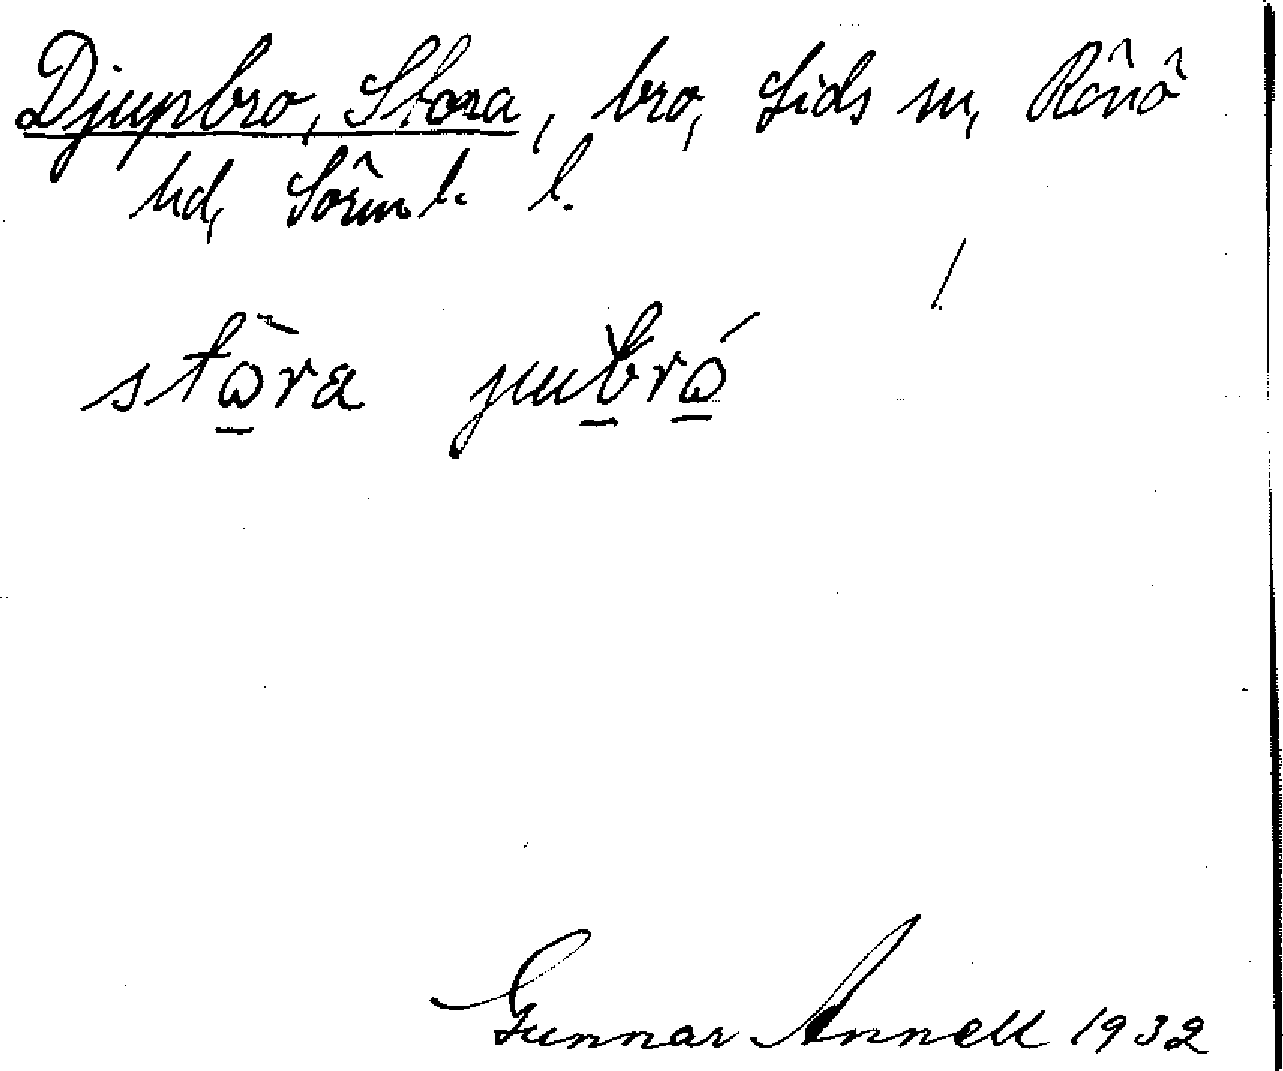 Djupbro, Stora, bro, Lids sn, Rönö
hd, Sörml. l.
stôra jubró
Gunnar Annell 1932